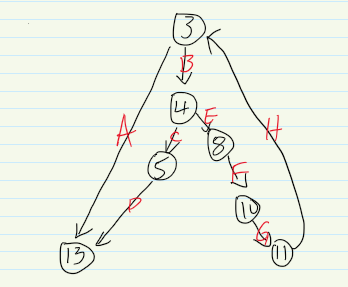 3
B
4
A
E
H
C
8
5
F
D
10
G
13
11